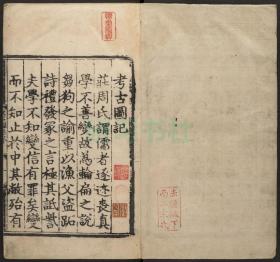 考古圖記
莊周氏謂儒者逐迹喪真
學不善變故為輪扁之說
芻狗之諭重以漁父盜跖
詩禮發冢之言極其詆訾
夫學不知變信有罪矣變
而不知止於中其敝殆有